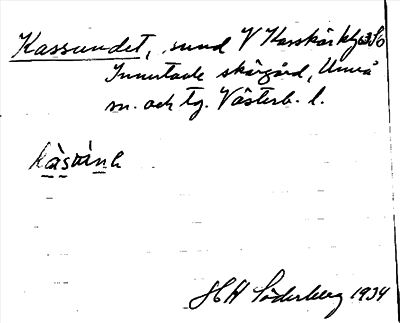 Kassundet, sund V Kasskär
Innertavle skärgård, Umeå
sn. och tg. Västerb. l.
HH Söderberg 1934